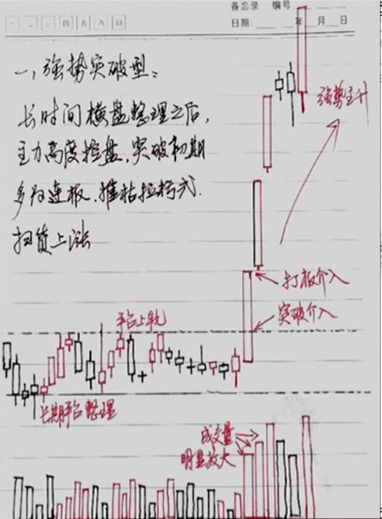 备忘录 编号
日期: 年 月 日
一,强势突破型:
长时间横盘整理之后,
主力高度控盘,突破初期
多为连板,摧枯拉朽式.
扫货上涨
强势主升
打板介入
突破介入
平台上轨
长期平台整理
成交量
明显放大